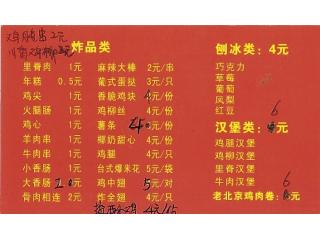 鸡脆骨2元
炸品类
里脊肉 1元
年糕 0.5元
鸡尖 1元
火腿肠 1元
鸡心 1元
羊肉串 1元
牛肉串 1元
小香肠 1元
大香肠 2.0元
骨肉相连 2元
麻辣大棒 2元/串
葡式蛋挞 3元/只
香脆鸡块 4元/份
鸡柳丝 4元/份
薯条 4.0元/份
椰奶甜心 4元/份
鸡腿 4元/只
台式爆米花 5元/袋
鸡中翅 5元/对
炸全翅 4元/只
刨冰类：4元
巧克力
草莓
葡萄
凤梨
红豆 6
汉堡类：元
鸡腿汉堡
鸡柳汉堡
里脊汉堡
牛肉汉堡 6
老北京鸡肉卷：8元